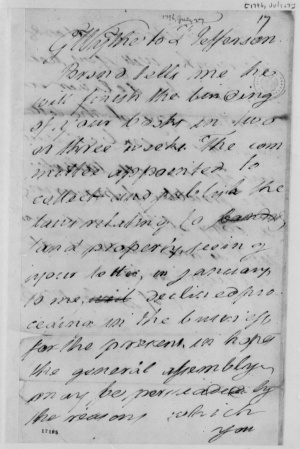 17
G. Wythe to T. Jefferson.
Brand tells me he
will finish the binding
of your books in two
or three weeks. The com
mittee appointed to
collect and publish the
laws relating to land
land property, seeing
your letter, in january
to me, will declined pro
ceeding in the business
for the present, in hope
the general assembly
may be persuaded by
the reasons which
you
17104